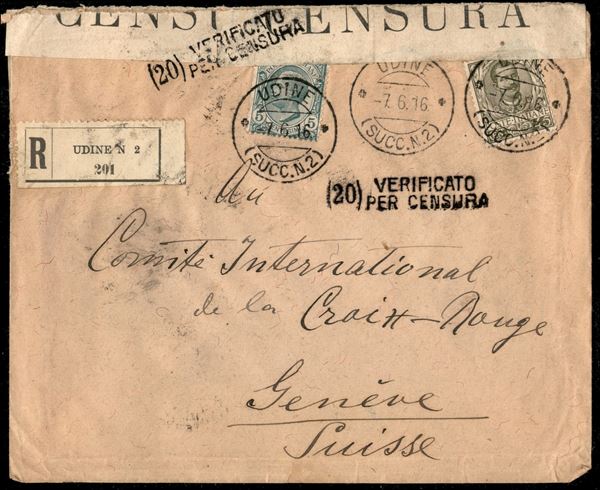 CENSU CENSURA
(20) VERIFICATO
PER CENSURA
UDINE
-7.6.16
(SUCC.N.2)
5 5
UDINE
-7.6.16
(SUCC.N.2)
UDINE
(SUCC.N.
R
UDINE N 2
201
(20) VERIFICATO
PER CENSURA
Au
Comité International
de la Croix-Rouge
Genève
Suisse